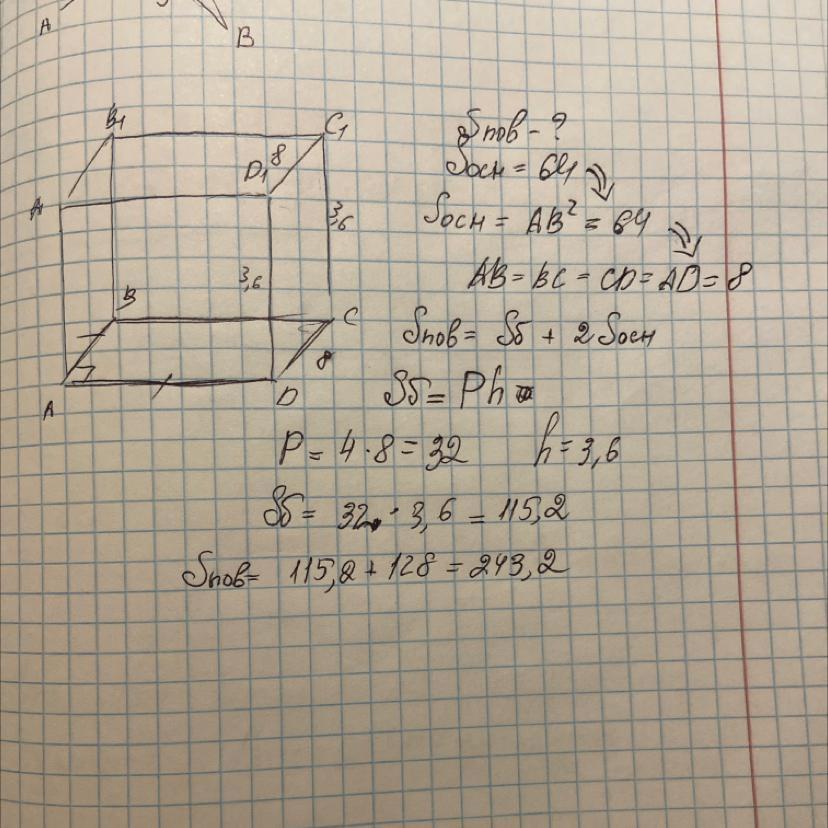 A
B
B1
C1
Sпов - ?
D1
8
Sосн = 64
A
3,6
Sосн = AB² = 64
3,6
AB = BC = CD = AD = 8
B
C
Sпов = Sб + 2 Sосн
8
A
D
Sб = Ph
P = 4 · 8 = 32 h = 3,6
Sб = 32 · 3,6 = 115,2
Sпов = 115,2 + 128 = 243,2